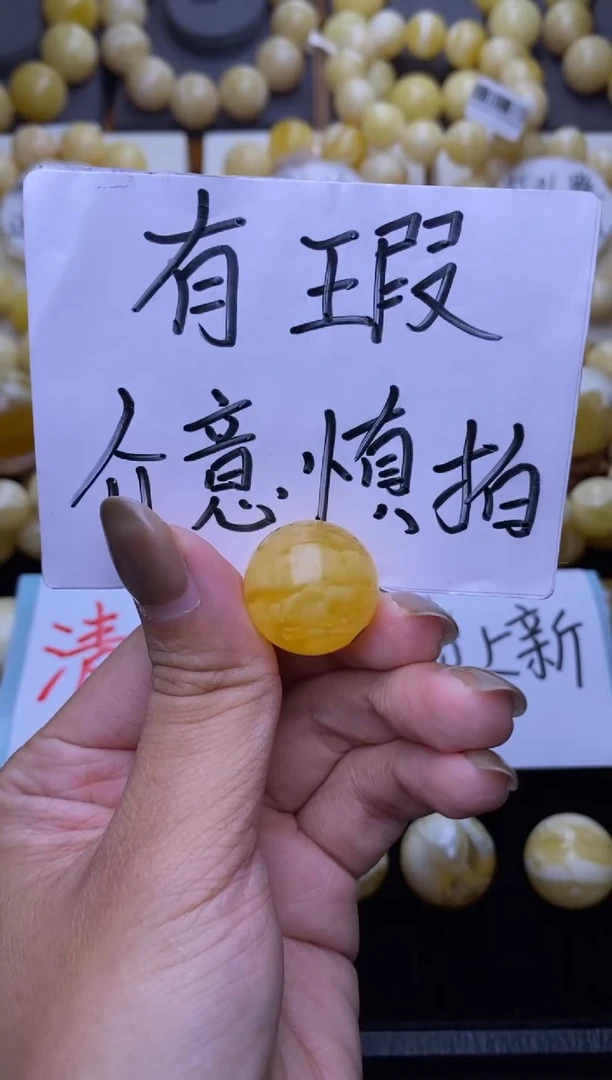 有瑕
介意慎拍
清
上新